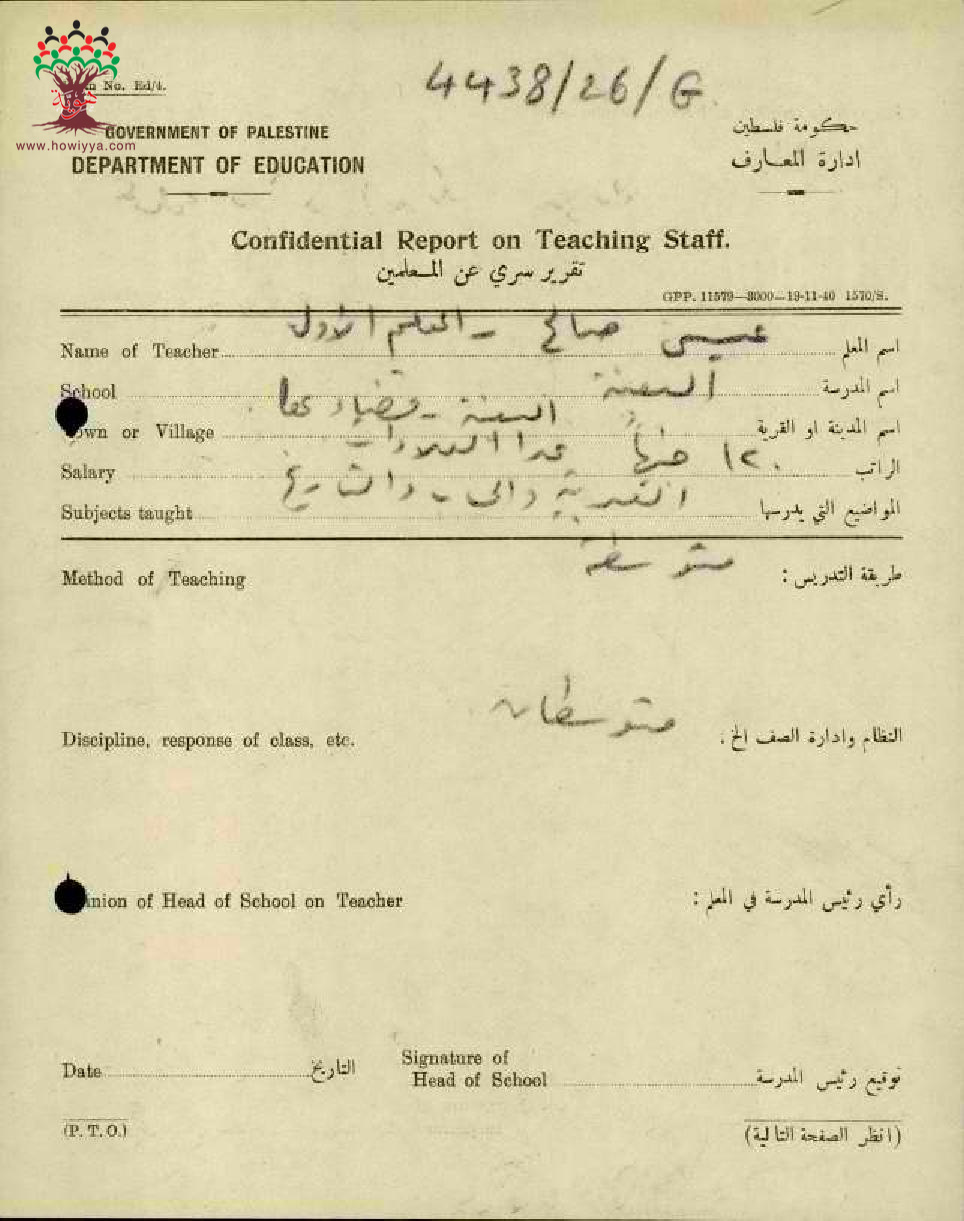 No. Ed/4.
4438/26/G.
www.howiyya.com
GOVERNMENT OF PALESTINE
حكومة فلسطين
DEPARTMENT OF EDUCATION
ادارة المعارف
Confidential Report on Teaching Staff.
تقرير سري عن المعلمين
GPP. 11579—3000—19-11-40 1570/S.
Name of Teacher عيسى صالح - المعلم الاول اسم المعلم
School البعنة اسم المدرسة
own or Village البعنة - قضاء عكا اسم المدينة او القرية
Salary ١٢٠ جنيهاً عدا العلاوات الراتب
Subjects taught والحساب والتاريخ المواضيع التي يدرسها
Method of Teaching متوسطة طريقة التدريس :
Discipline, response of class, etc. متوسطان النظام وادارة الصف الخ .
inion of Head of School on Teacher رأي رئيس المدرسة في المعلم :
Date التاريخ Signature of
Head of School توقيع رئيس المدرسة
(P. T. O.) (انظر الصفحة التالية)